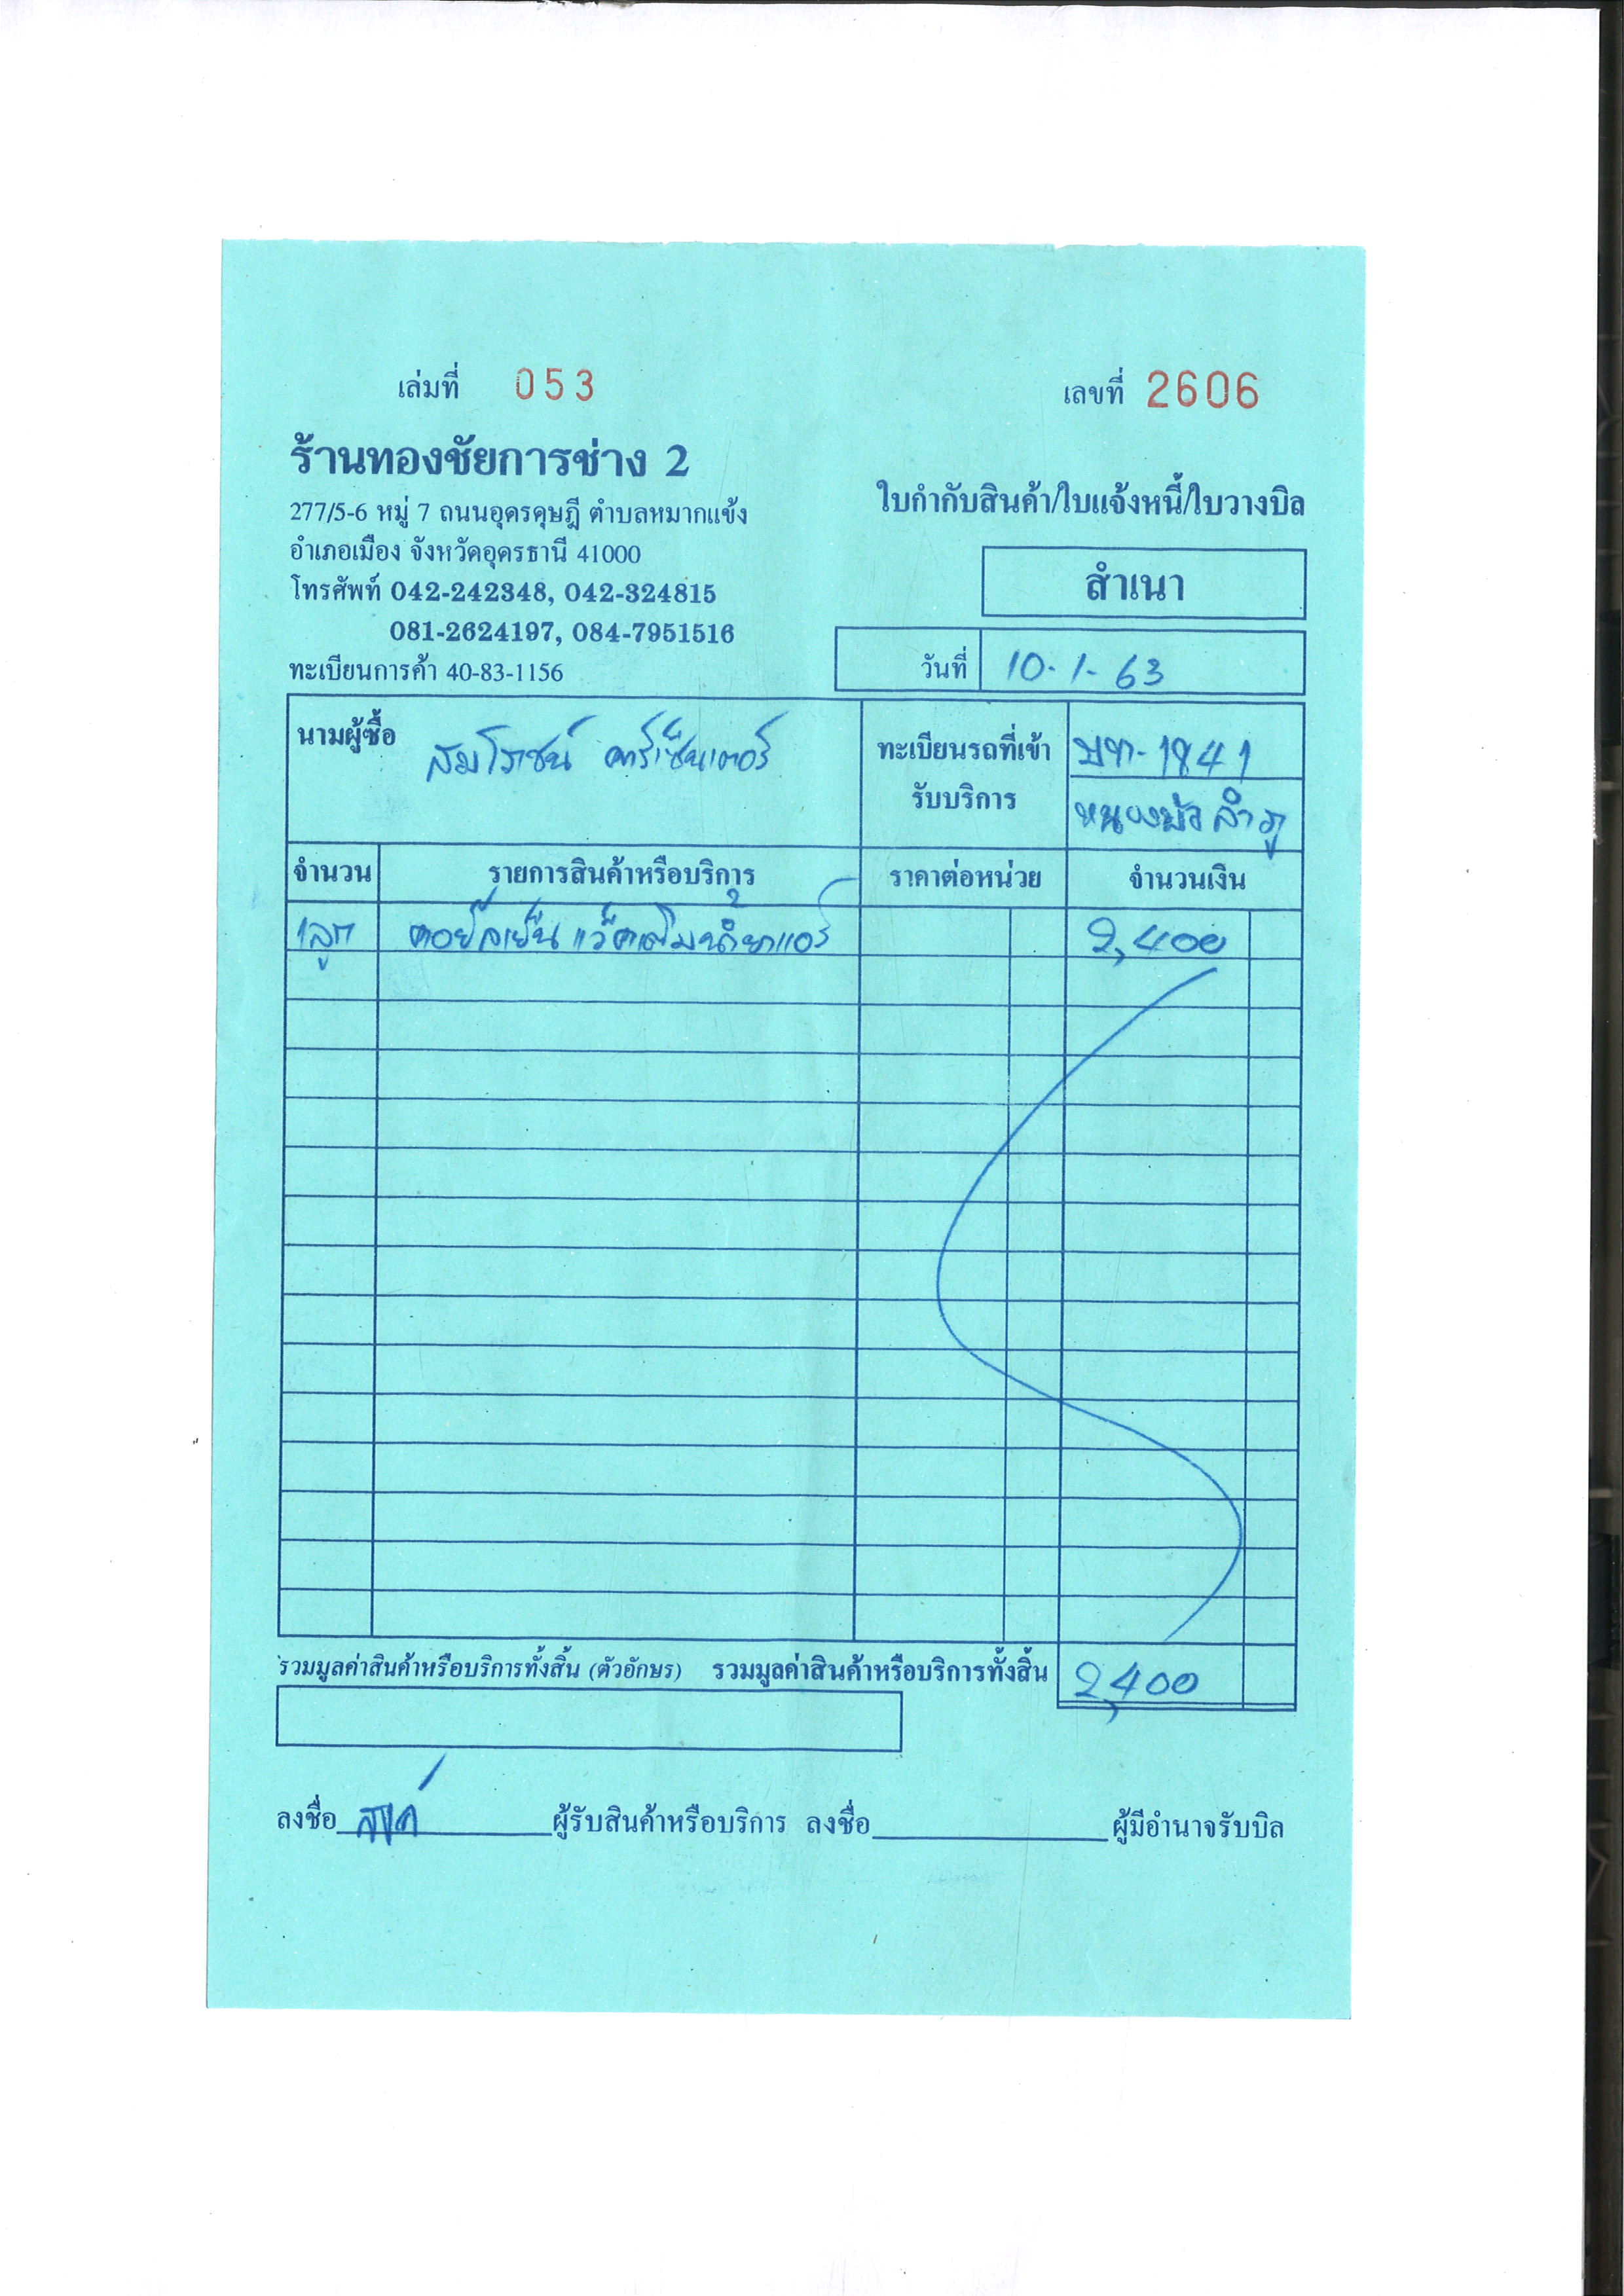 เล่มที่ 053
เลขที่ 2606
ร้านทองชัยการช่าง 2
277/5-6 หมู่ 7 ถนนอุดรดุษฎี ตำบลหมากแข้ง
อำเภอเมือง จังหวัดอุดรธานี 41000
โทรศัพท์ 042-242348, 042-324815
081-2624197, 084-7951516
ทะเบียนการค้า 40-83-1156
ใบกำกับสินค้า/ใบแจ้งหนี้/ใบวางบิล
สำเนา
วันที่ 10-1-63
นามผู้ซื้อ สมโรชน์ คาร์เซ็นเตอร์
ทะเบียนรถที่เข้ารับบริการ 1841
หนองบัวลำภู
จำนวน รายการสินค้าหรือบริการ ราคาต่อหน่วย จำนวนเงิน
1ลูก คอยล์เย็น แว็คเติมน้ำยาแอร์ 2,400
รวมมูลค่าสินค้าหรือบริการทั้งสิ้น (ตัวอักษร) รวมมูลค่าสินค้าหรือบริการทั้งสิ้น 2,400
ลงชื่อ ผู้รับสินค้าหรือบริการ ลงชื่อ ผู้มีอำนาจรับบิล